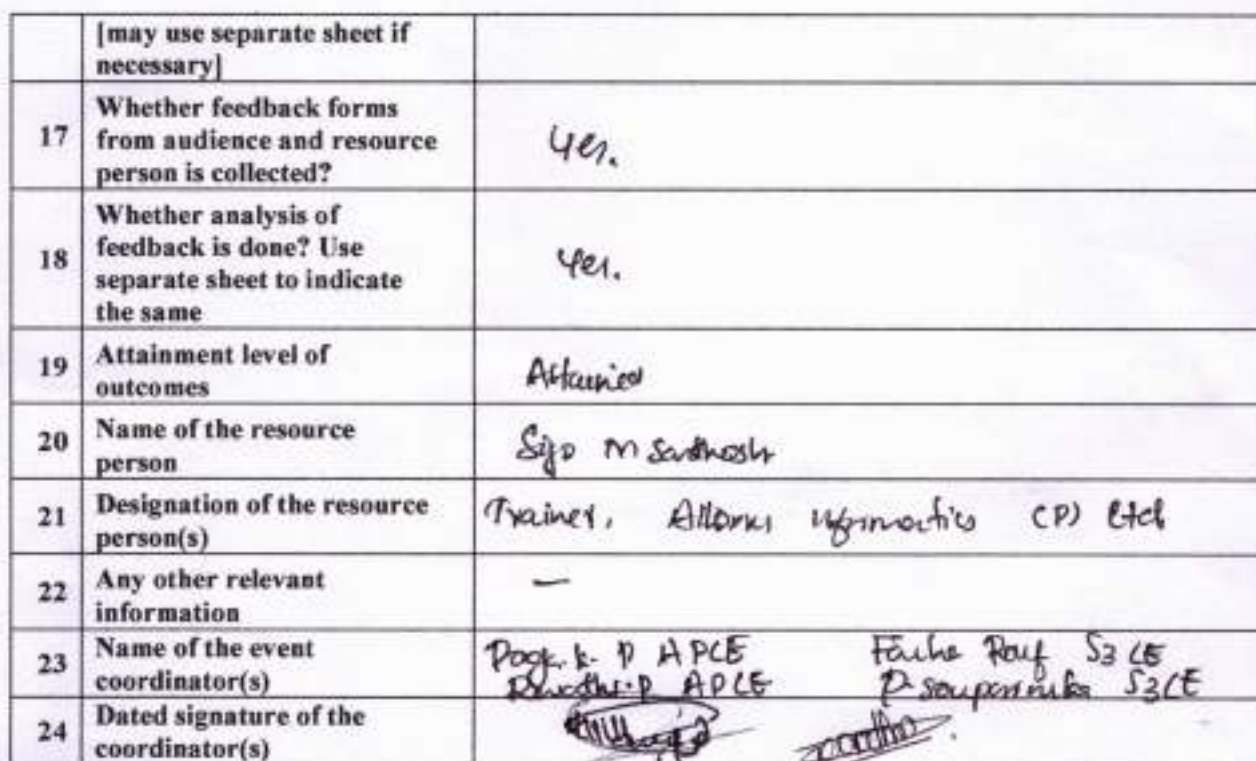 [may use separate sheet if
necessary]
17 Whether feedback forms
from audience and resource
person is collected?
Yes.
Whether analysis of
feedback is done? Use
18 separate sheet to indicate
the same
Yes.
19 Attainment level of
outcomes
Attained
20 Name of the resource
person
Sijo M Santhosh
21 Designation of the resource
person(s)
Trainer, Informatics (P) Ltd
22 Any other relevant
information
—
23 Name of the event
coordinator(s)
P APCE S3 CE
APCE S3CE
24 Dated signature of the
coordinator(s)